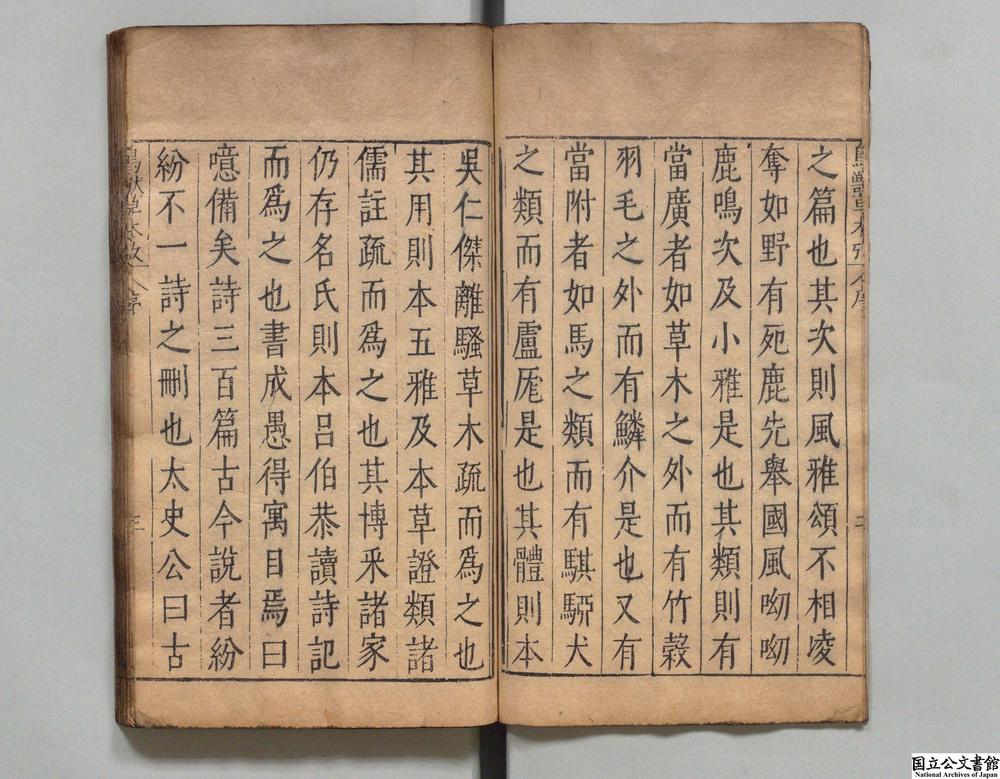 之篇也其次則風雅頌不相凌
奪如野有死鹿先舉國風呦呦
鹿鳴次及小雅是也其類則有
當廣者如草木之外而有竹穀
羽毛之外而有鱗介是也又有
當附者如馬之類而有騏驔犬
之類而有盧厖是也其體則本
吳仁傑離騷草木疏而爲之也
其用則本五雅及本草證類諸
儒註疏而爲之也其博釆諸家
仍存名氏則本呂伯恭讀詩記
而爲之也書成愚得寓目焉曰
噫備矣詩三百篇古今說者紛
紛不一詩之刪也太史公曰古
鳥獸草木攷 序 三
国立公文書館
National Archives of Japan